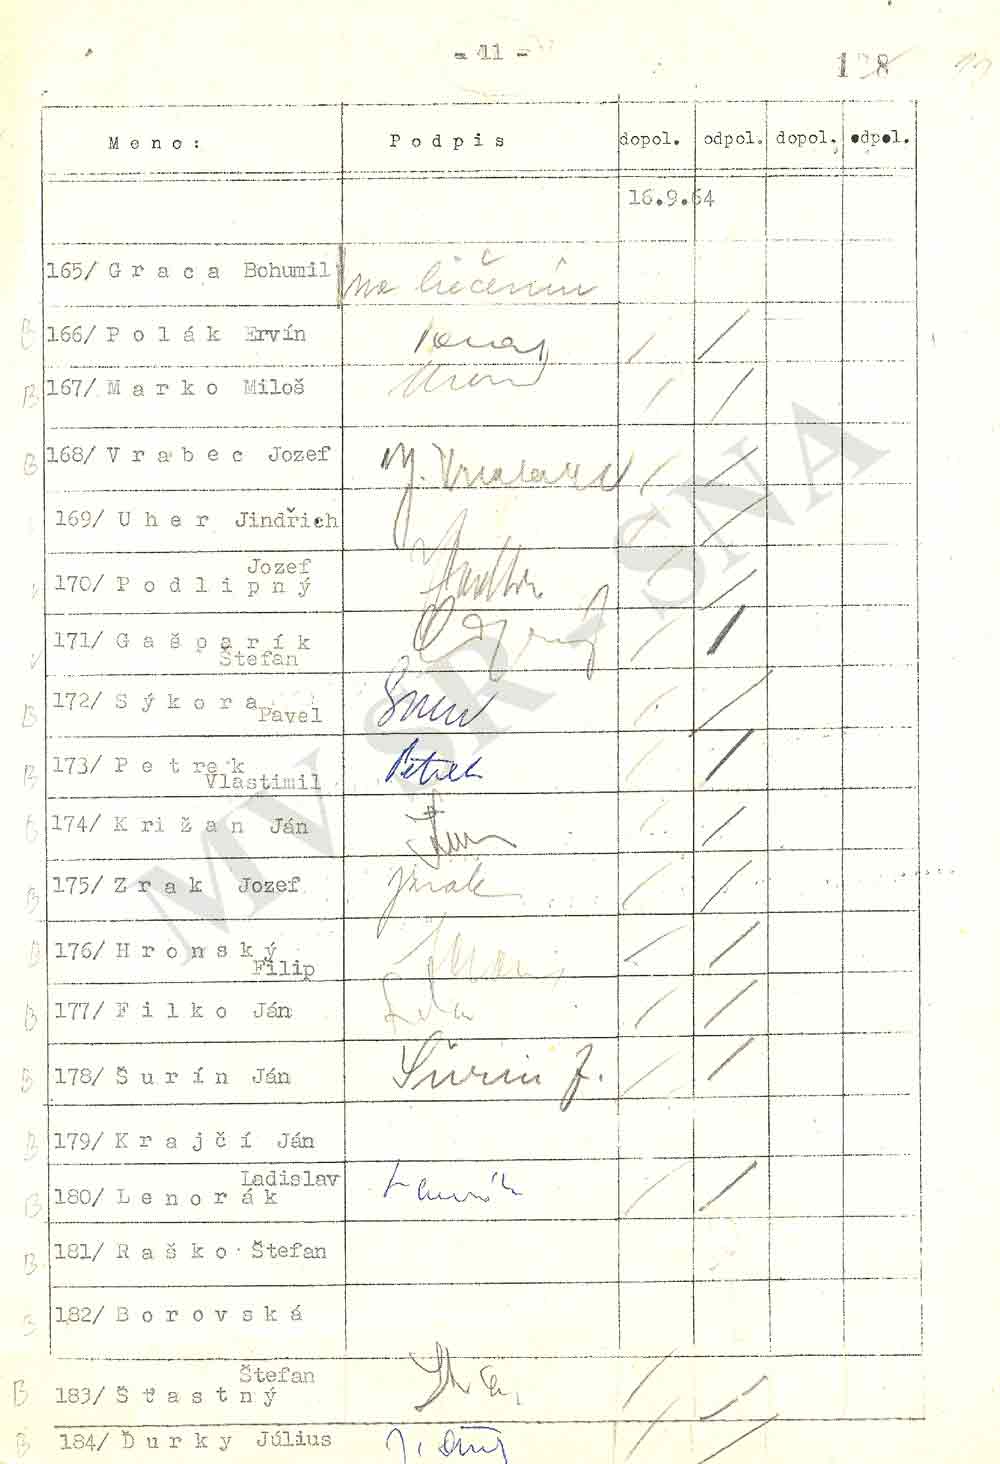 - 11 -
Meno: Podpis dopol. odpol. dopol. odpol.
16.9.64
165/ Graca Bohumil na liečením
B 166/ Polák Ervín / /
B 167/ Marko Miloš / /
B 168/ Vrabec Jozef J. Vrabec / /
169/ Uher Jindřich / /
Jozef
170/ Podlipný / /
171/ Gašparík / /
Štefan
172/ Sýkora
B Pavel / /
173/ Petrek Petrek / /
B Vlastimil
174/ Križan Ján / /
B 175/ Zrak Jozef Zrak / /
176/ Hronský / /
Filip
B 177/ Filko Ján / /
B 178/ Šurín Ján Šurin J. / /
B 179/ Krajčí Ján
Ladislav
B 180/ Lenorák / /
B 181/ Raško Štefan
B 182/ Borovská
Štefan
B 183/ Šťastný / /
B 184/ Ďurky Július / /
MV SR - SNA